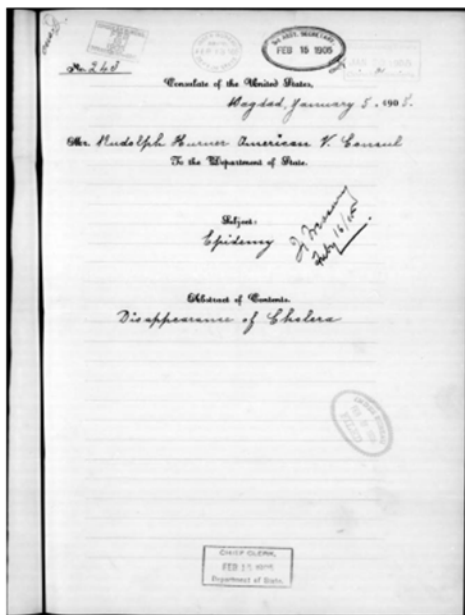 3rd ASST. SECRETARY
FEB 15 1905
No. 243
Consulate of the United States,
Bagdad, January 5. 1905.
Mr. Rudolph Hurner American V. Consul
To the Department of State.
Subject:
Epidemy
Feby 16/05
Abstract of Contents.
Disappearance of Cholera
CHIEF CLERK,
FEB 15 1905
Department of State.